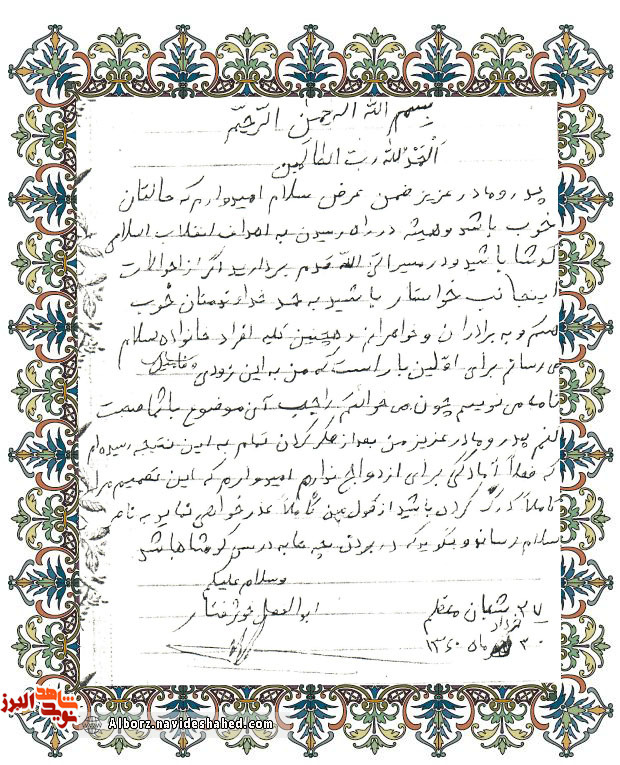 بسم الله الرحمن الرحیم
الحمدلله رب العالمین
پدر و مادر عزیز ضمن عرض سلام امیدوارم که حالتان
خوب باشد و همیشه در راه رسیدن به اهداف انقلاب اسلامی
کوشا باشید و در مسیر الی الله قدم بردارید اگر از احوالات
اینجانب خواستار باشید به حمد خدا تومتان خوب
هستم و به برادران و خواهرانم و همچنین کلیه افراد خانواده سلام
می رسانم برای اولین بار است که من به این زودی
نامه می نویسم چون می خواستم راجب آن موضوع با شما صحبت
کنم پدر و مادر عزیز من بعد از فکر کردن تمام به این نتیجه رسیده ام
که فعلاً آمادگی برای ازدواج ندارم امیدوارم که این تصمیم مرا
کاملاً درک کرده باشید از قول من کاملاً عذرخواهی نمایید به ناصر
سلام رسانده و بگویید که در بردن بچه ها به درسی کوشا باشد
وسلام علیکم
ابوالفضل
۲۷ شعبان معظم
خرداد
۳۰ ماه ۱۳۶۰
نوید شاهد البرز
Alborz.navideshahed.com